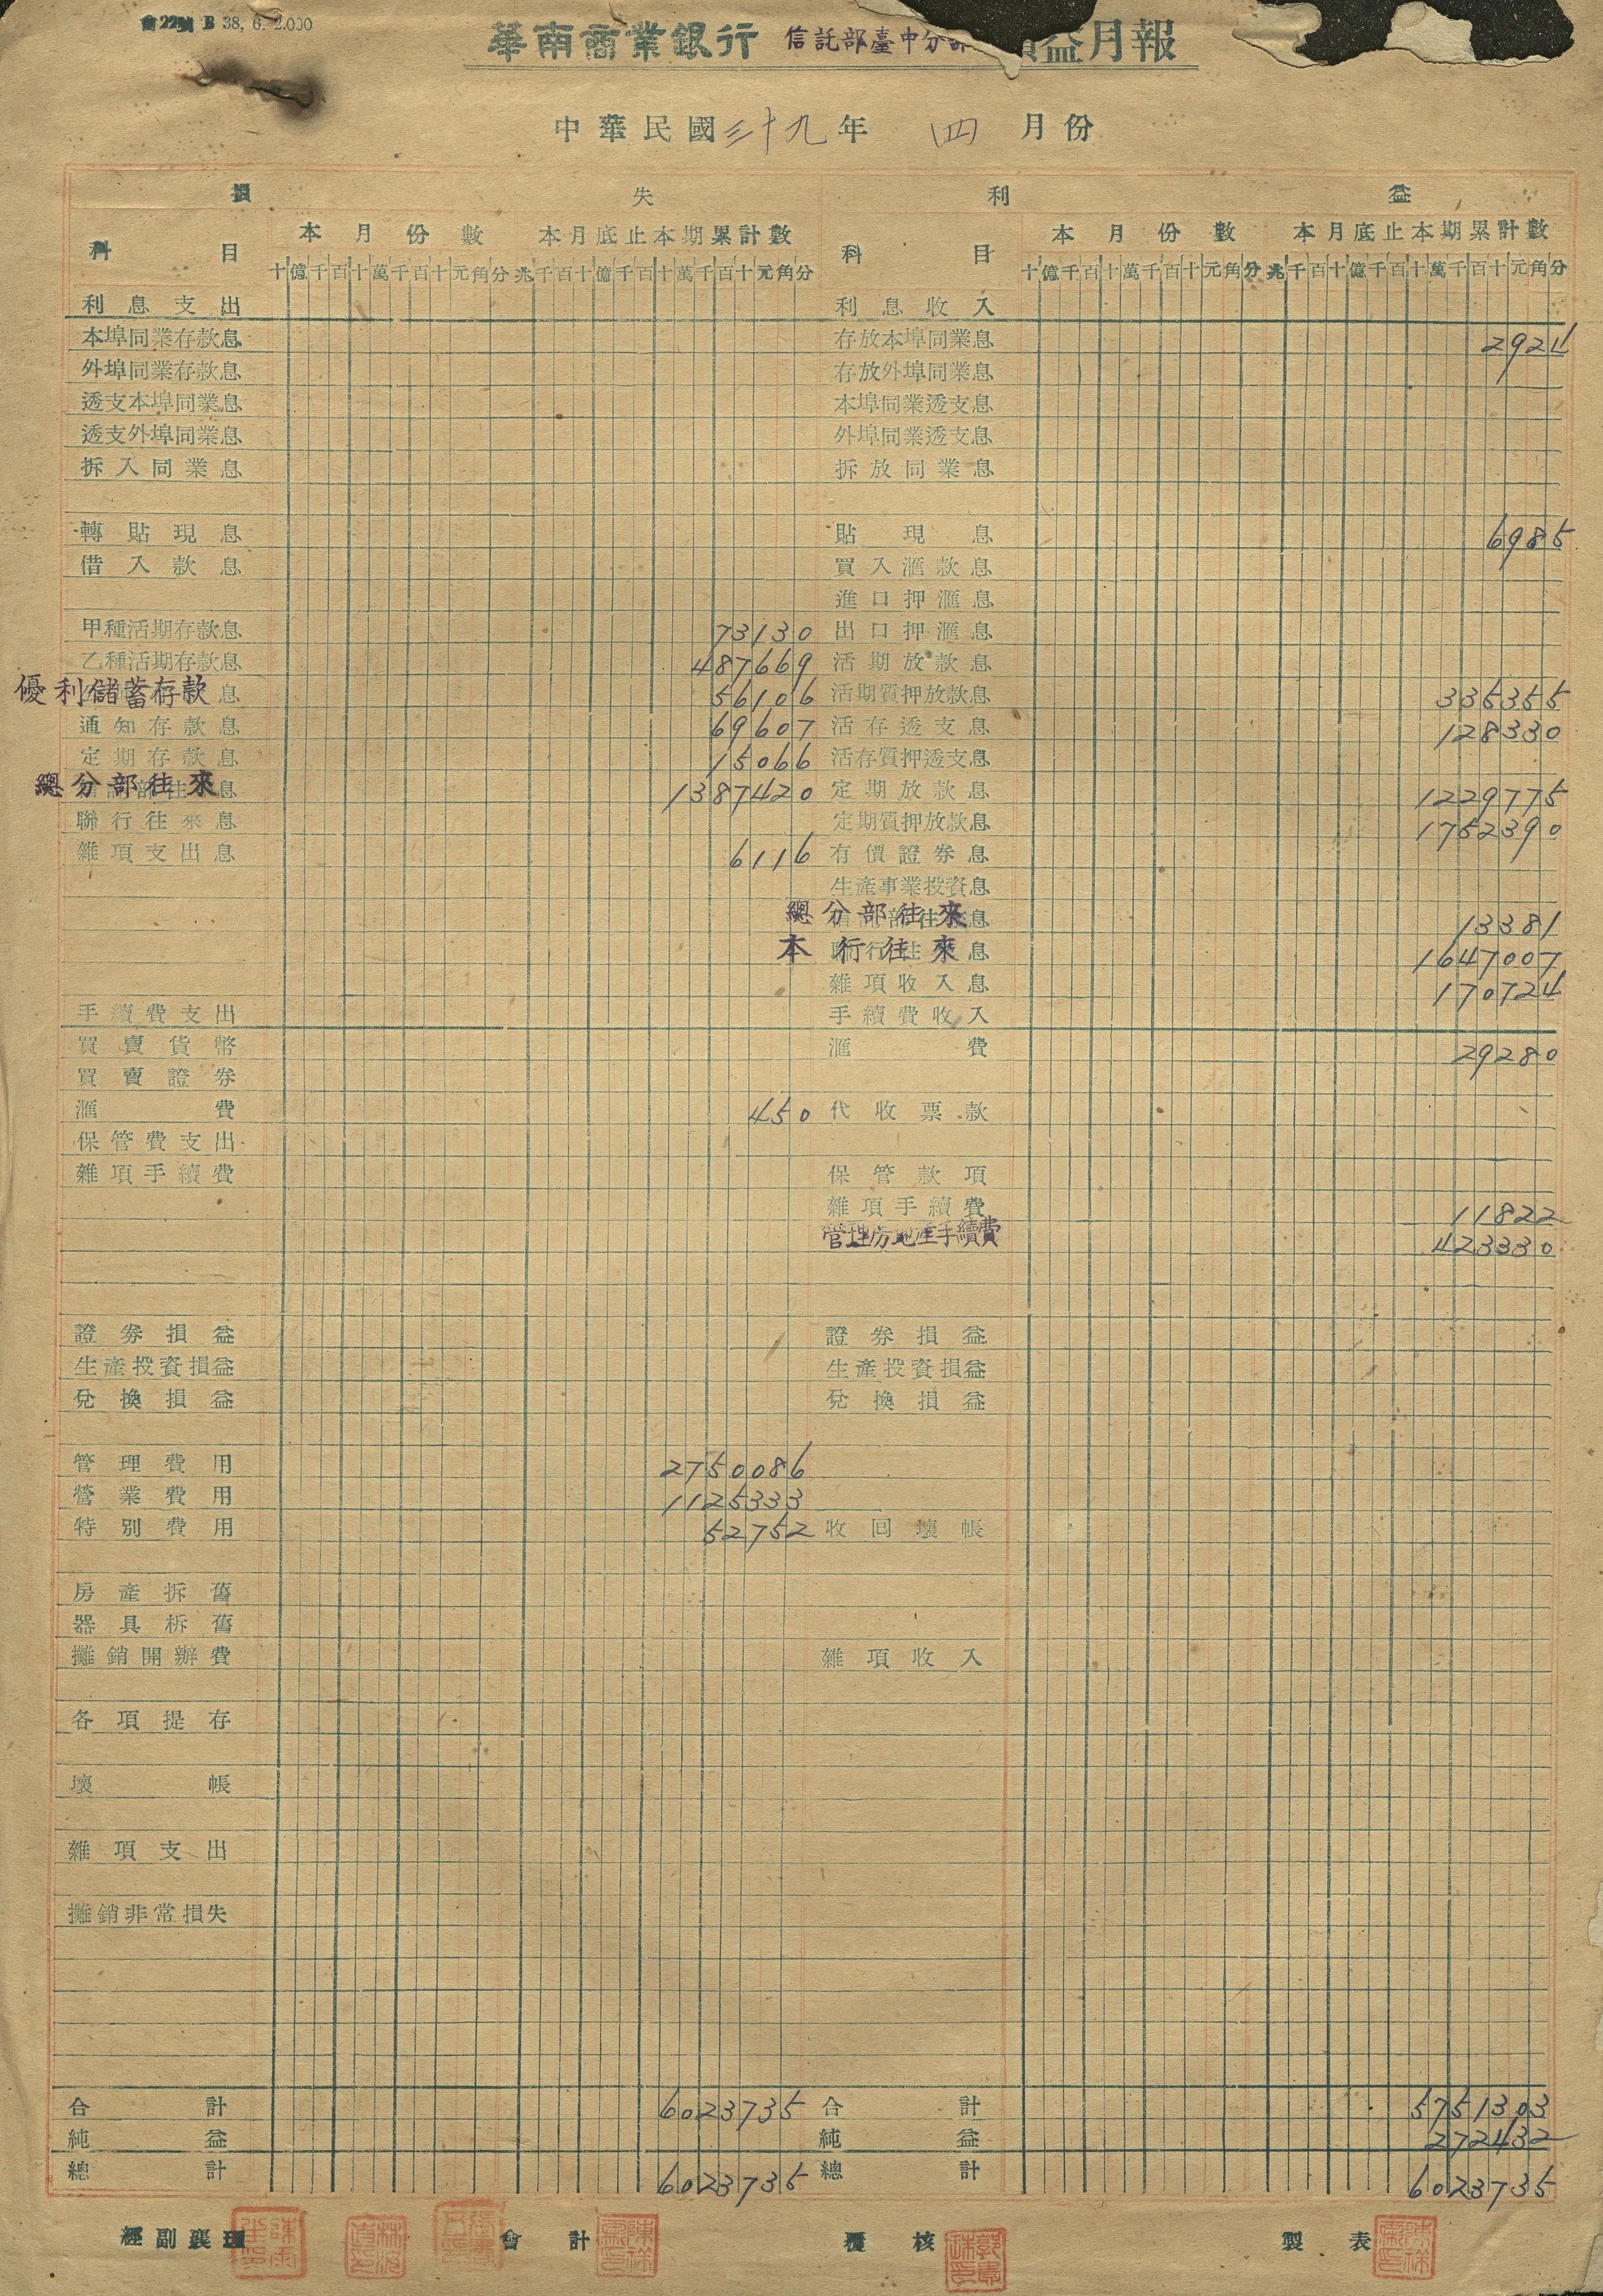 會22號 B 38, 6. 2.000
華南商業銀行 信託部臺中分部 損益月報
中華民國三十九年 四 月份
損 失 利 益
科 目 本月份數 本月底止本期累計數 科 目 本月份數 本月底止本期累計數
十億千百十萬千百十元角分 兆千百十億千百十萬千百十元角分 十億千百十萬千百十元角分 兆千百十億千百十萬千百十元角分
利息支出 利息收入
本埠同業存款息 存放本埠同業息 2924
外埠同業存款息 存放外埠同業息
透支本埠同業息 本埠同業透支息
透支外埠同業息 外埠同業透支息
拆入同業息 拆放同業息
轉貼現息 貼現息 6985
借入款息 買入滙款息
進口押滙息
甲種活期存款息 73130 出口押滙息
乙種活期存款息 487669 活期放款息
優利儲蓄存款息 56106 活期質押放款息 335355
通知存款息 69607 活存透支息 128330
定期存款息 15066 活存質押透支息
總分部往來息 1387420 定期放款息 1229775
聯行往來息 定期質押放款息 1752390
雜項支出息 6116 有價證券息
生產事業投資息
總分部往來息 13381
本行往來息 1647007
雜項收入息 170724
手續費支出 手續費收入
買賣貨幣 滙費 29280
買賣證券
滙費 450 代收票款
保管費支出
雜項手續費 保管款項
雜項手續費 11822
管理房地產手續費 423330
證券損益 證券損益
生產投資損益 生產投資損益
兌換損益 兌換損益
管理費用 2750086
營業費用 1125333
特別費用 52752 收回壞帳
房產拆舊
器具拆舊
攤銷開辦費 雜項收入
各項提存
壞帳
雜項支出
攤銷非常損失
合計 6023735 合計 5751303
純益 純益 272432
總計 6023735 總計 6023735
經副襄理 會計 覆核 製表